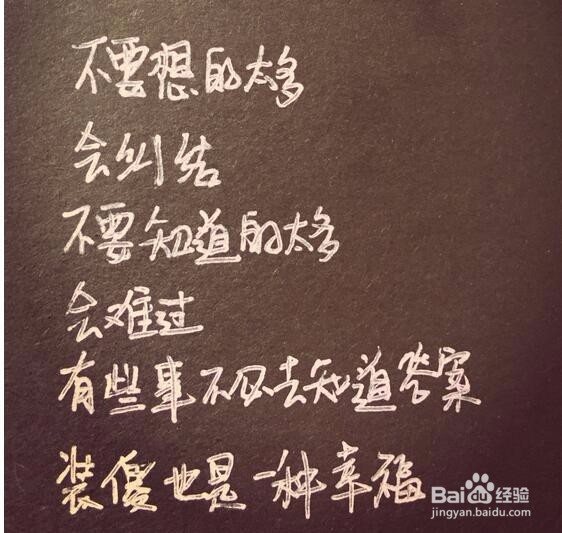 不要想的太多
会纠结
不要知道的太多
会难过
有些事不必去知道答案
装傻也是一种幸福
Bai du 经验
jingyan.baidu.com